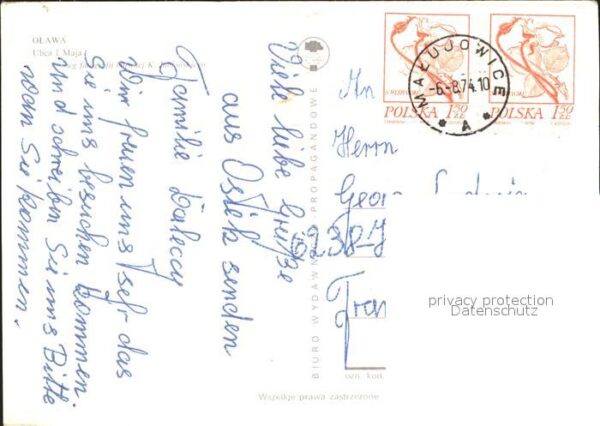 OŁAWA
Ulica 1 Maja
Viele liebe Grüße
aus Osiek senden
Familie
Wir freuen uns sehr das
Sie uns besuchen kommen.
Und schreiben Sie uns Bitte
wen Sie kommen.
BIURO WYDAWN PROPAGANDOWE
Wszelkie prawa zastrzeżone
MAŁUJOWICE
-6.-8.74.10
A
POLSKA 1,50 ZŁ
POLSKA 1,50 ZŁ
An
Herrn
Georg
6238-
Fran
ozn. kod.
privacy protection
Datenschutz